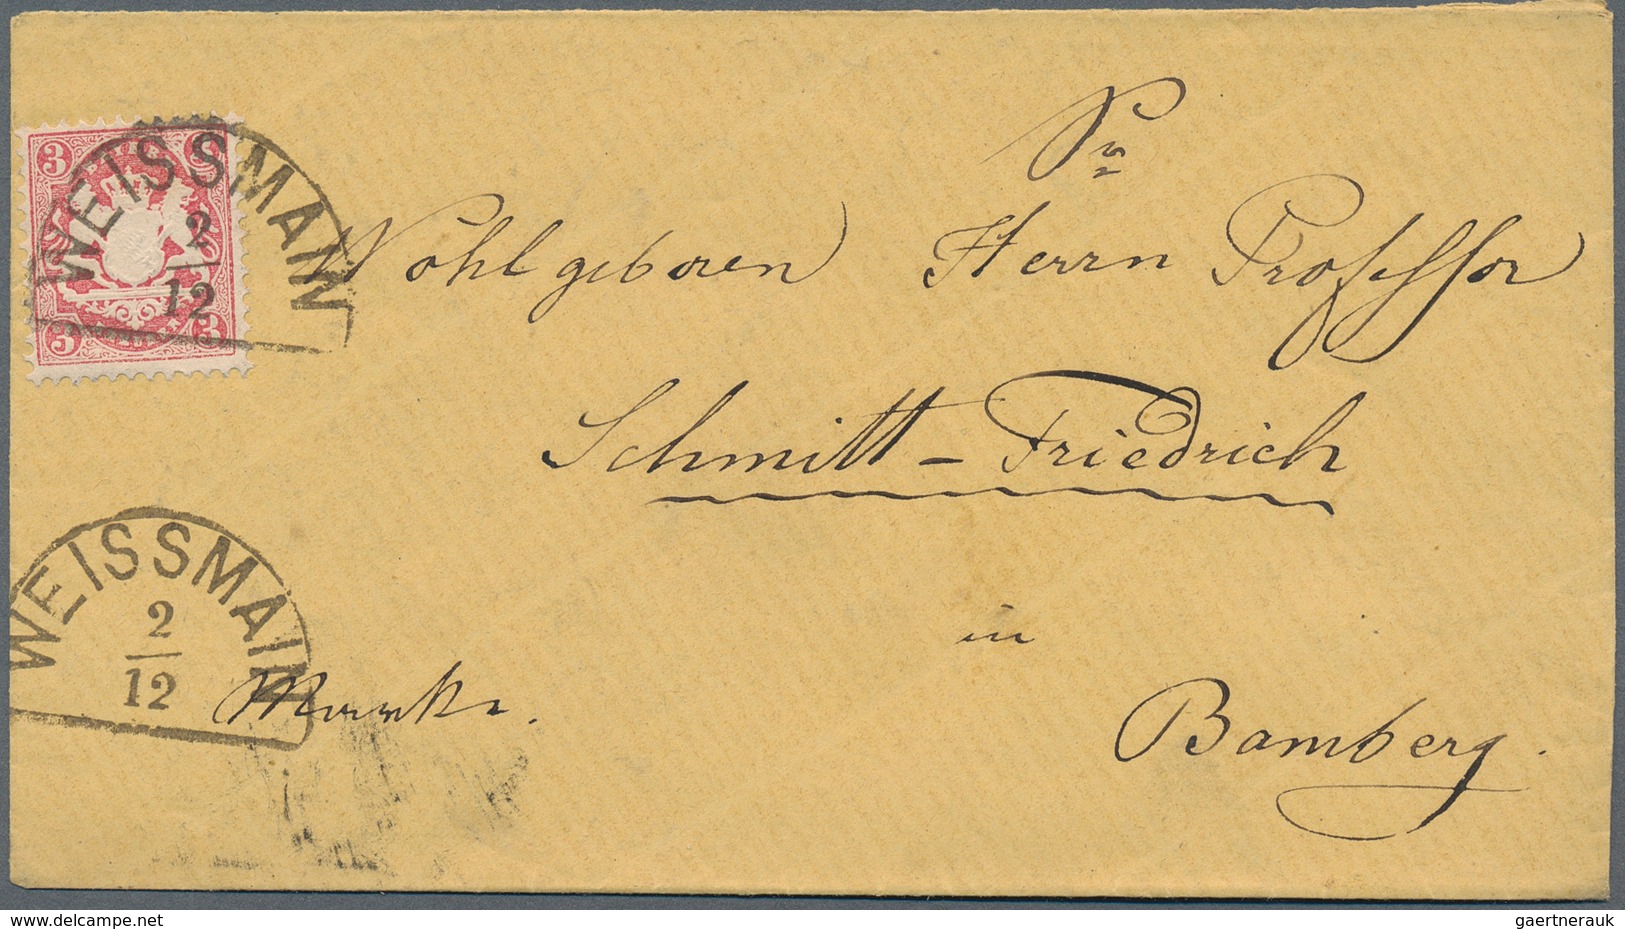 3 3
3 3
WEISSMAIN
2
12
Sr
Wohlgeboren Herrn Professor
Schmitt-Friedrich
in
Bamberg.
WEISSMAIN
2
12
www.delcampe.net
gaertnerauk